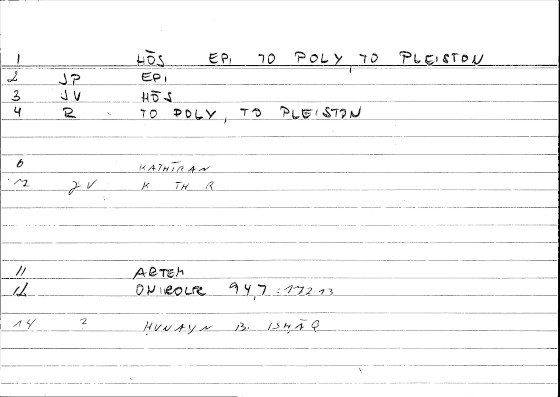 1 HŌS EPI TO POLY, TO PLEISTON
2 JP EPI
3 JV HŌS
4 R TO POLY, TO PLEISTON
6 KATHĪRAN
12 JV K TH R
11 ARTEM
12 ONIROCR 94,7 : 172 13
14 2 ḤUNAYN B. ISḤĀQ